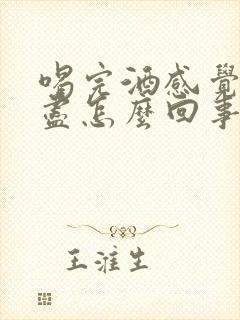 喝完酒感覺
盡怎麼回事
王淮生